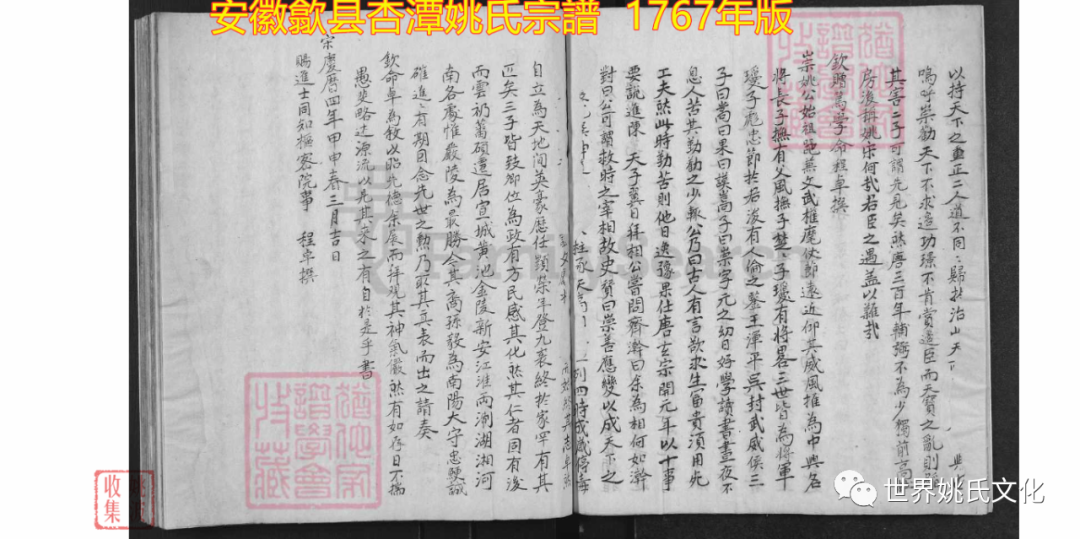 安徽歙县杏潭姚氏宗譜 1767年版
以持天下之並正二人道不同：歸於治山天下
嗚呼崇勸天下不求邊功璟不肯賞邊臣而天寶之亂則
其害二子可謂先見矣然唐三百年輔弼不為少獨前高
房後稱姚宋何哉君臣之遇蓋以難哉
欽賜萬學命程卓撰
崇姚公始祖
文武權麾仗節遠近仰其威風推為中興名
將長子撫有父風撫子楚子瓊有將畧三世皆為將軍
瓊子彪忠節於右後有人倫之鑒王渾平吳封武威侯三
子曰嵩曰果曰謨嵩子曰崇字元之幼日好學讀書晝夜不
息人苦其勤勸之少報公乃曰古人有言欲求生富貴須用先
工夫然此時勤苦則他日逸豫果仕唐玄宗開元年以十事
要說進陳 天子翼日拜相公嘗問齊澣曰余為相何如澣
對曰公可謂救時之宰相故史贊曰崇善應變以成天下之
自立為天地間英豪應任顯柒年登九袠終於家罕有其
匹矣三子皆致卿位為政有方民感其化然其仁者固有後
而雲礽蕃碩遷居宣城黃池金陵新安江淮两浙湖湘河
南各處惟嚴陵為最勝今其裔孫發為南陽大守忠鯁誠
確進有期目念先世之勲乃取其元表而出之請奏
欽命卓為敘以昭先德余展而拜觀其神氣儼然有如存日不揣
愚斐略述源流以見其來之有自於是乎書
宋慶曆四年甲申春三月吉日
賜進士同知樞密院事 程卓撰
猶他家譜學會特藏
猶他家譜學會特藏
收集
FamilySearch
世界姚氏文化